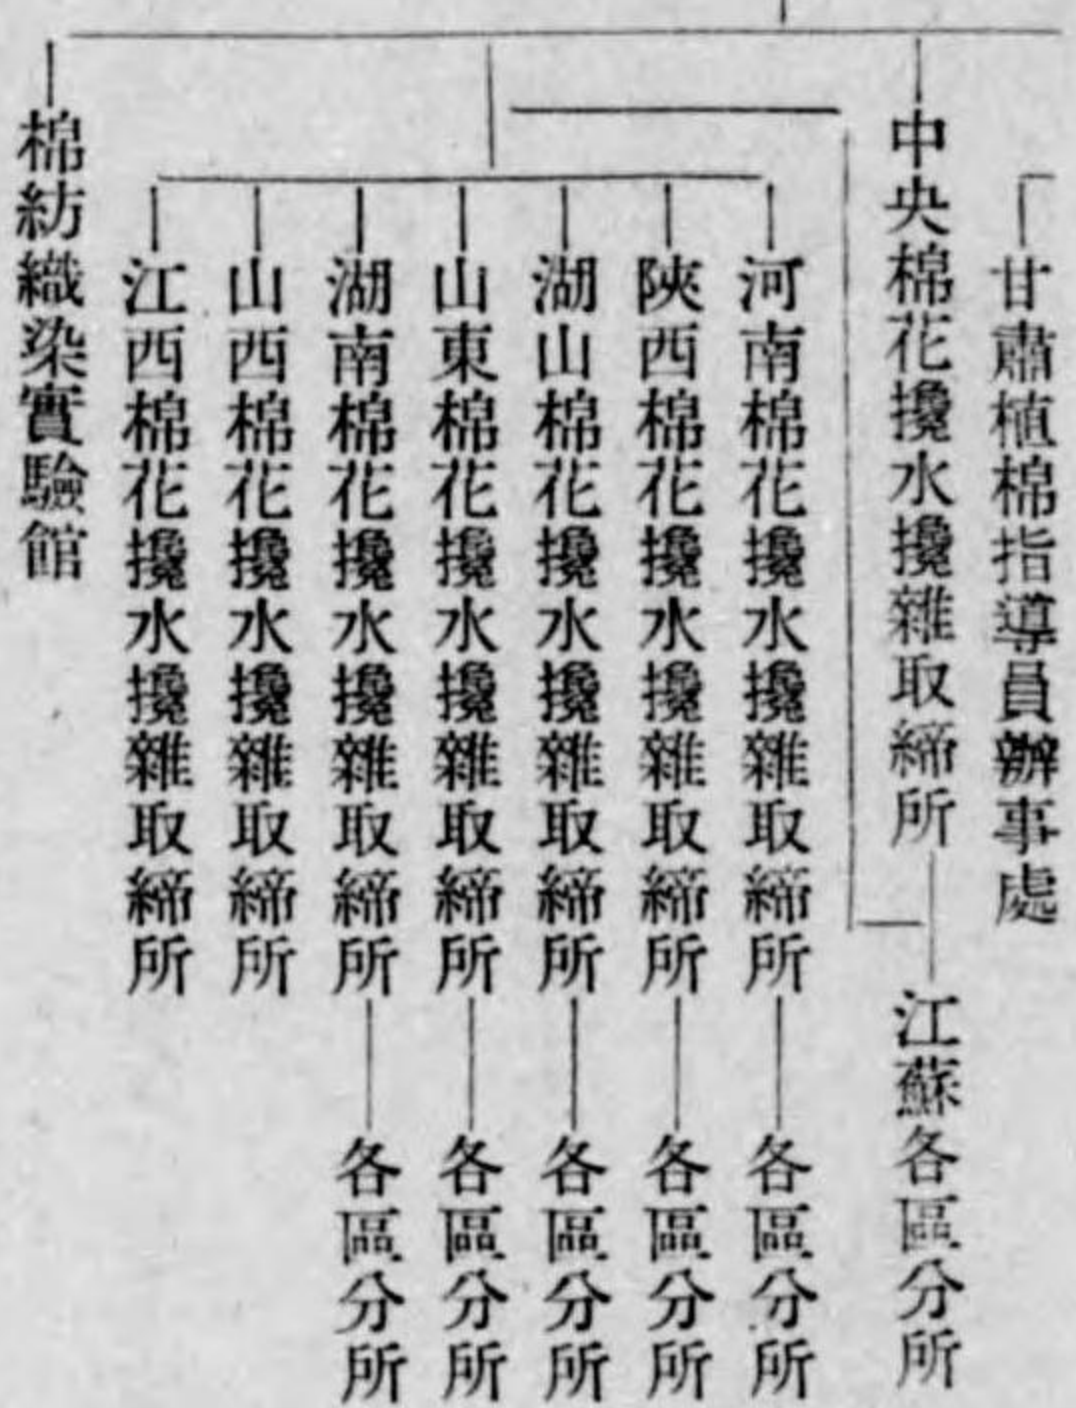 甘肅植棉指導員辦事處
中央棉花攙水攙雜取締所
江蘇各區分所
河南棉花攙水攙雜取締所
各區分所
陝西棉花攙水攙雜取締所
各區分所
湖山棉花攙水攙雜取締所
各區分所
山東棉花攙水攙雜取締所
各區分所
湖南棉花攙水攙雜取締所
各區分所
山西棉花攙水攙雜取締所
江西棉花攙水攙雜取締所
棉紡織染實驗館